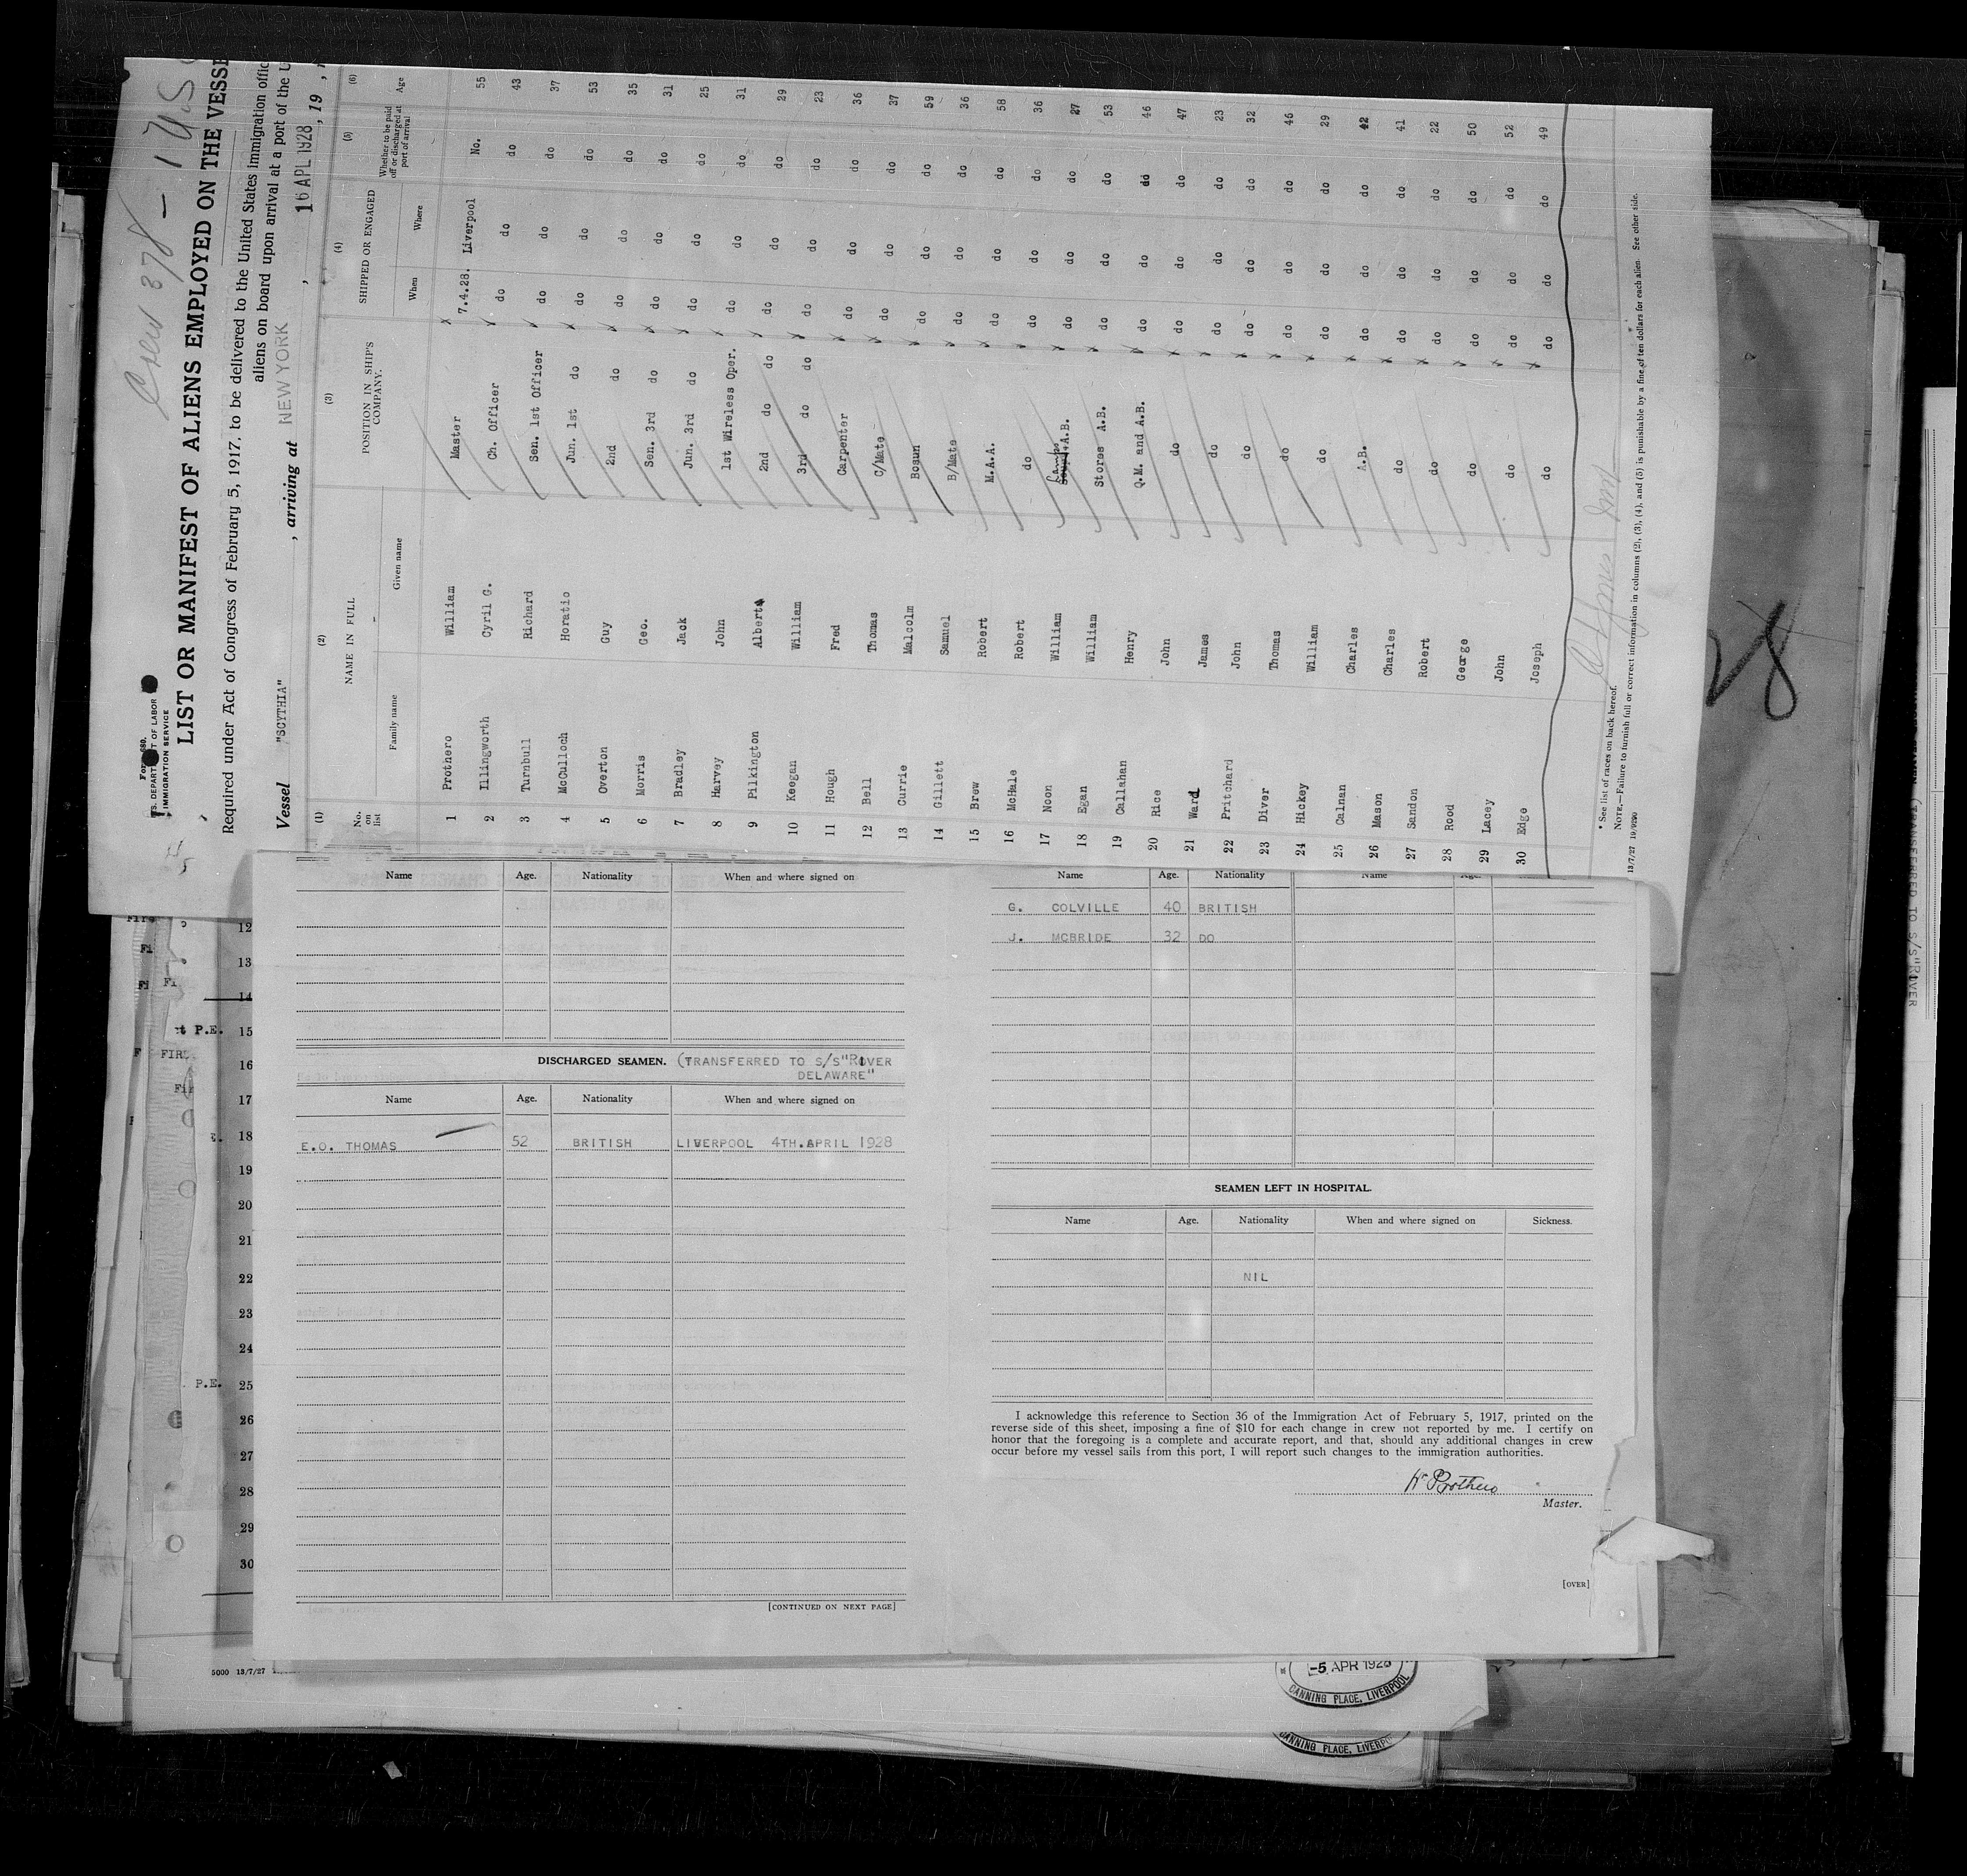 Crew 378 - 1 USC
U.S. DEPARTMENT OF LABOR
IMMIGRATION SERVICE
LIST OR MANIFEST OF ALIENS EMPLOYED ON THE VESSE
Required under Act of Congress of February 5, 1917, to be delivered to the United States immigration offic
aliens on board upon arrival at a port of the U
Vessel "SCYTHIA" , arriving at NEW YORK , 16 APL 1928 , 19
(1) (2) (3) (4) (5) (6)
No. on list NAME IN FULL POSITION IN SHIP'S COMPANY. SHIPPED OR ENGAGED Whether to be paid off or discharged at port of arrival Age
Family name Given name When Where
1 Prothero William Master 7.4.28. Liverpool No. 55
2 Illingworth Cyril G. Ch. Officer do do do 43
3 Turnbull Richard Sen. 1st Officer do do do 37
4 McCulloch Horatio Jun. 1st do do do do 53
5 Overton Guy 2nd do do do do 35
6 Morris Geo. Sen. 3rd do do do do 31
7 Bradley Jack Jun. 3rd do do do do 25
8 Harvey John 1st Wireless Oper. do do do 31
9 Pilkington Albert 2nd do do do do do 29
10 Keegan William 3rd do do do do do 23
11 Hough Fred Carpenter do do do 36
12 Bell Thomas C/Mate do do do 37
13 Currie Malcolm Bosun do do do 59
14 Gillett Samuel B/Mate do do do 36
15 Brew Robert M.A.A. do do do 58
16 McHale Robert do do do do 36
17 Noon William Lamps A.B. do do do 27
18 Egan William Stores A.B. do do do 53
19 Callahan Henry Q.M. and A.B. do do do 46
20 Rice John do do do do 47
21 Ward James do do do do 23
22 Pritchard John do do do do 32
23 Diver Thomas do do do do 46
24 Hickey William do do do do 29
25 Calnan Charles A.B. do do do 42
26 Mason Charles do do do do 41
27 Sandon Robert do do do do 22
28 Rood George do do do do 50
29 Lacey John do do do do 52
30 Edge Joseph do do do do 49
* See list of races on back hereof.
NOTE.—Failure to furnish full or correct information in columns (2), (3), (4), and (5) is punishable by a fine of ten dollars for each alien. See other side.
13/7/27
28
Name Age. Nationality When and where signed on
DISCHARGED SEAMEN. (TRANSFERRED TO S/S"RIVER
DELAWARE"
Name Age. Nationality When and where signed on
E.O. THOMAS 52 BRITISH LIVERPOOL 4TH.APRIL 1928
[CONTINUED ON NEXT PAGE]
Name Age. Nationality Name
G. COLVILLE 40 BRITISH
J. MCBRIDE 32 DO
SEAMEN LEFT IN HOSPITAL.
Name Age. Nationality When and where signed on Sickness.
NIL
I acknowledge this reference to Section 36 of the Immigration Act of February 5, 1917, printed on the
reverse side of this sheet, imposing a fine of $10 for each change in crew not reported by me. I certify on
honor that the foregoing is a complete and accurate report, and that, should any additional changes in crew
occur before my vessel sails from this port, I will report such changes to the immigration authorities.
W. Prothero
Master.
[OVER]
12
13
14
t P.E. 15
FIR 16
17
18
19
20
21
22
23
24
P.E. 25
26
27
28
29
30
5000 13/7/27
-5 APR 1928
CANNING PLACE, LIVERPOOL
CANNING PLACE, LIVERP
(TRANSFERRED TO S/S"RIVER